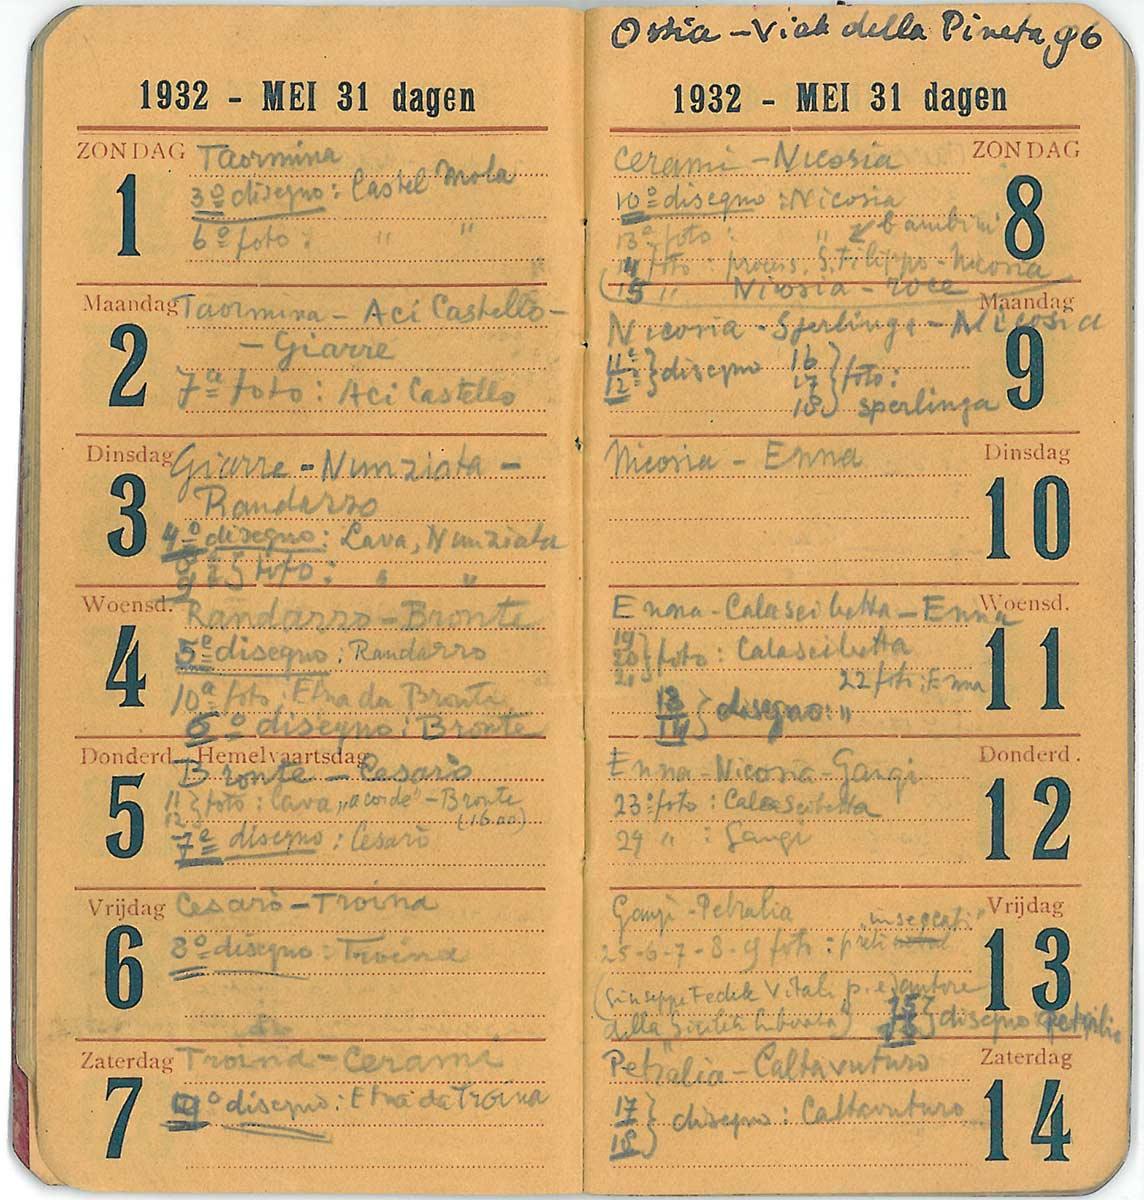 1932 - MEI 31 dagen
ZONDAG Taormina
1 3º disegno: Castel Mola
6º foto: " "
Maandag Taormina - Aci Castello -
2 - Giarre
7ª foto: Aci Castello
Dinsdag Giarre - Nunziata -
3 Randazzo
4º disegno: Lava, Nunziata
foto: " "
Woensd. Randazzo - Bronte
4 5º disegno: Randazzo
10ª foto: Etna da Bronte
6º disegno: Bronte
Donderd. Hemelvaartsdag
Bronte - Cesarò
5 11 12 } foto: Lava "a corde" - Bronte
(16.00)
7º disegno: Cesarò
Vrijdag Cesarò - Troina
6 8º disegno: Troina
Zaterdag Troina - Cerami
7 9º disegno: Etna da Troina
Ostia - Viale della Pineta 96
1932 - MEI 31 dagen
Cerami - Nicosia ZONDAG
10º disegno: Nicosia 8
13º foto: " bambini
14 foto: process. S. Filippo - Nicosia
(15 " Nicosia - roce
Maandag
Nicosia - Sperlinga - Nicosia
11º 12º } disegno 16 17 18 } foto: 9
sperlinga
Nicosia - Enna Dinsdag
10
Enna - Calascibetta - Enna Woensd.
19 20 21 } foto: Calascibetta 11
22 foto: Enna
13 14 } disegno: "
Enna - Nicosia - Gangi Donderd.
23º foto: Calascibetta 12
24 " : Gangi
Gangi - Petralia "insegcati" Vrijdag
25-6-7-8-9 foto: preti 13
(Giuseppe Fedele Vitali p. e cantore
della "Sicilia liberata") 15 16 } disegno Petralia
Petralia - Caltavuturo Zaterdag
17 18 } disegno: Caltavuturo 14